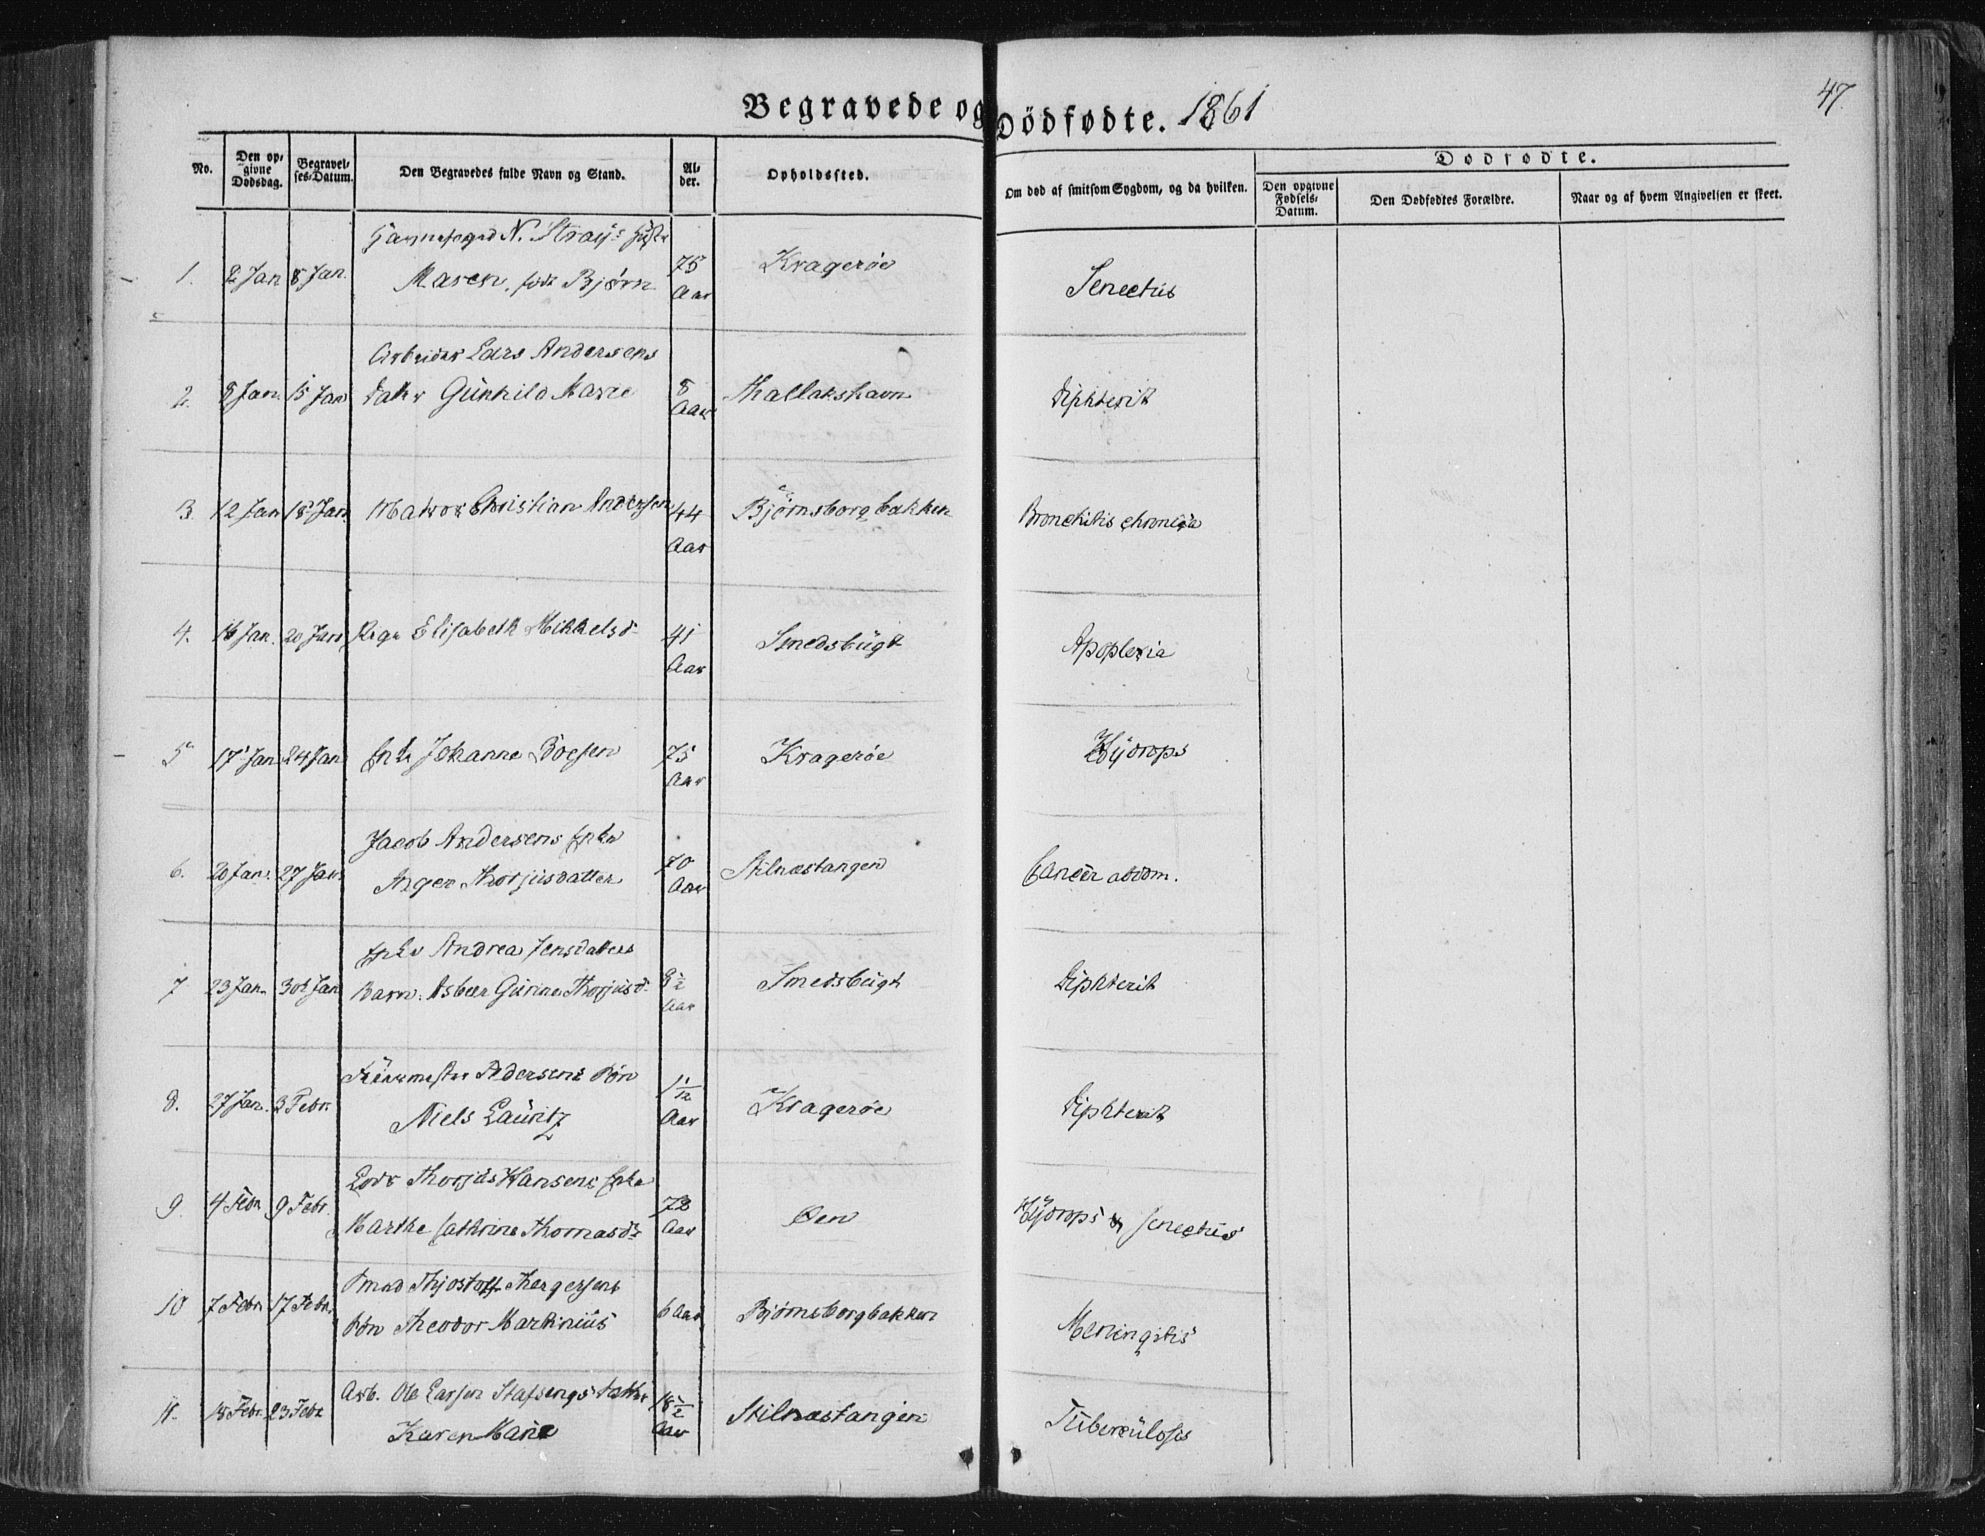 Begravede og Dödfødte. 1861
47
No.
Den opgivne Dödsdag.
Begravelses-Datum.
Den Begravedes fulde Navn og Stand.
Alder.
Opholdssted.
Om død af smitsom Sygdom, og da hvilken.
Dødfødte.
Den opgivne Fødsels-Datum.
Den Dødfødtes Forældre.
Naar og af hvem Angivelsen er skeet.
N. Strays
1. 2 Jan 8 Jan. Maren, født Bjørn 75 Aar Kragerøe Senectus
Arbeider Lars Andersens
2. 8 Jan. 15 Jan Datter Gunhild Marie 8 Aar Thallakshavn Diphterit
3. 12 Jan 18 Jan. Matros Christian Andersen 44 Aar Bjørnsborgbakken Bronchitis chronica
4. 16 Jan. 20 Jan Pige Elisabeth Mikkelsd. 41 Aar Smedsbugt Apoplexia
5 17 Jan 24 Jan Enke Johanne Boesen 75 Aar Kragerøe Hydrops
Jacob Andersens Enke
6. 20 Jan. 27 Jan Inger Thorjusdatter 70 Aar Stilnæstangen Cancer abdom.
Enke Andrea Jensdatters
7 23 Jan. 30t Jan Barn: Asbor Gurine Thorjusd. 8½ Aar Smedsbugt Diphterit
Pedersens Søn
8. 27 Jan. 3 Febr. Niels Lauritz 1 1/12 Aar Kragerøe Diphterit
Lods Thorjus Hansens Enke
9. 4 Febr 9 Febr. Marthe Cathrine Thomasdr 72 Aar Øen Hydrops & Senectus
Smed Thjostolf Thergersens
10 7 Febr. 17 Febr. Søn Theodor Martinius 6 Aar Bjørnsborgbakken Meningitis
Arb. Ole Larsen Stafsengs Datter
11. 18 Febr. 23 Febr Karen Marie 18½ Aar Stilnæstangen Tuberculosis